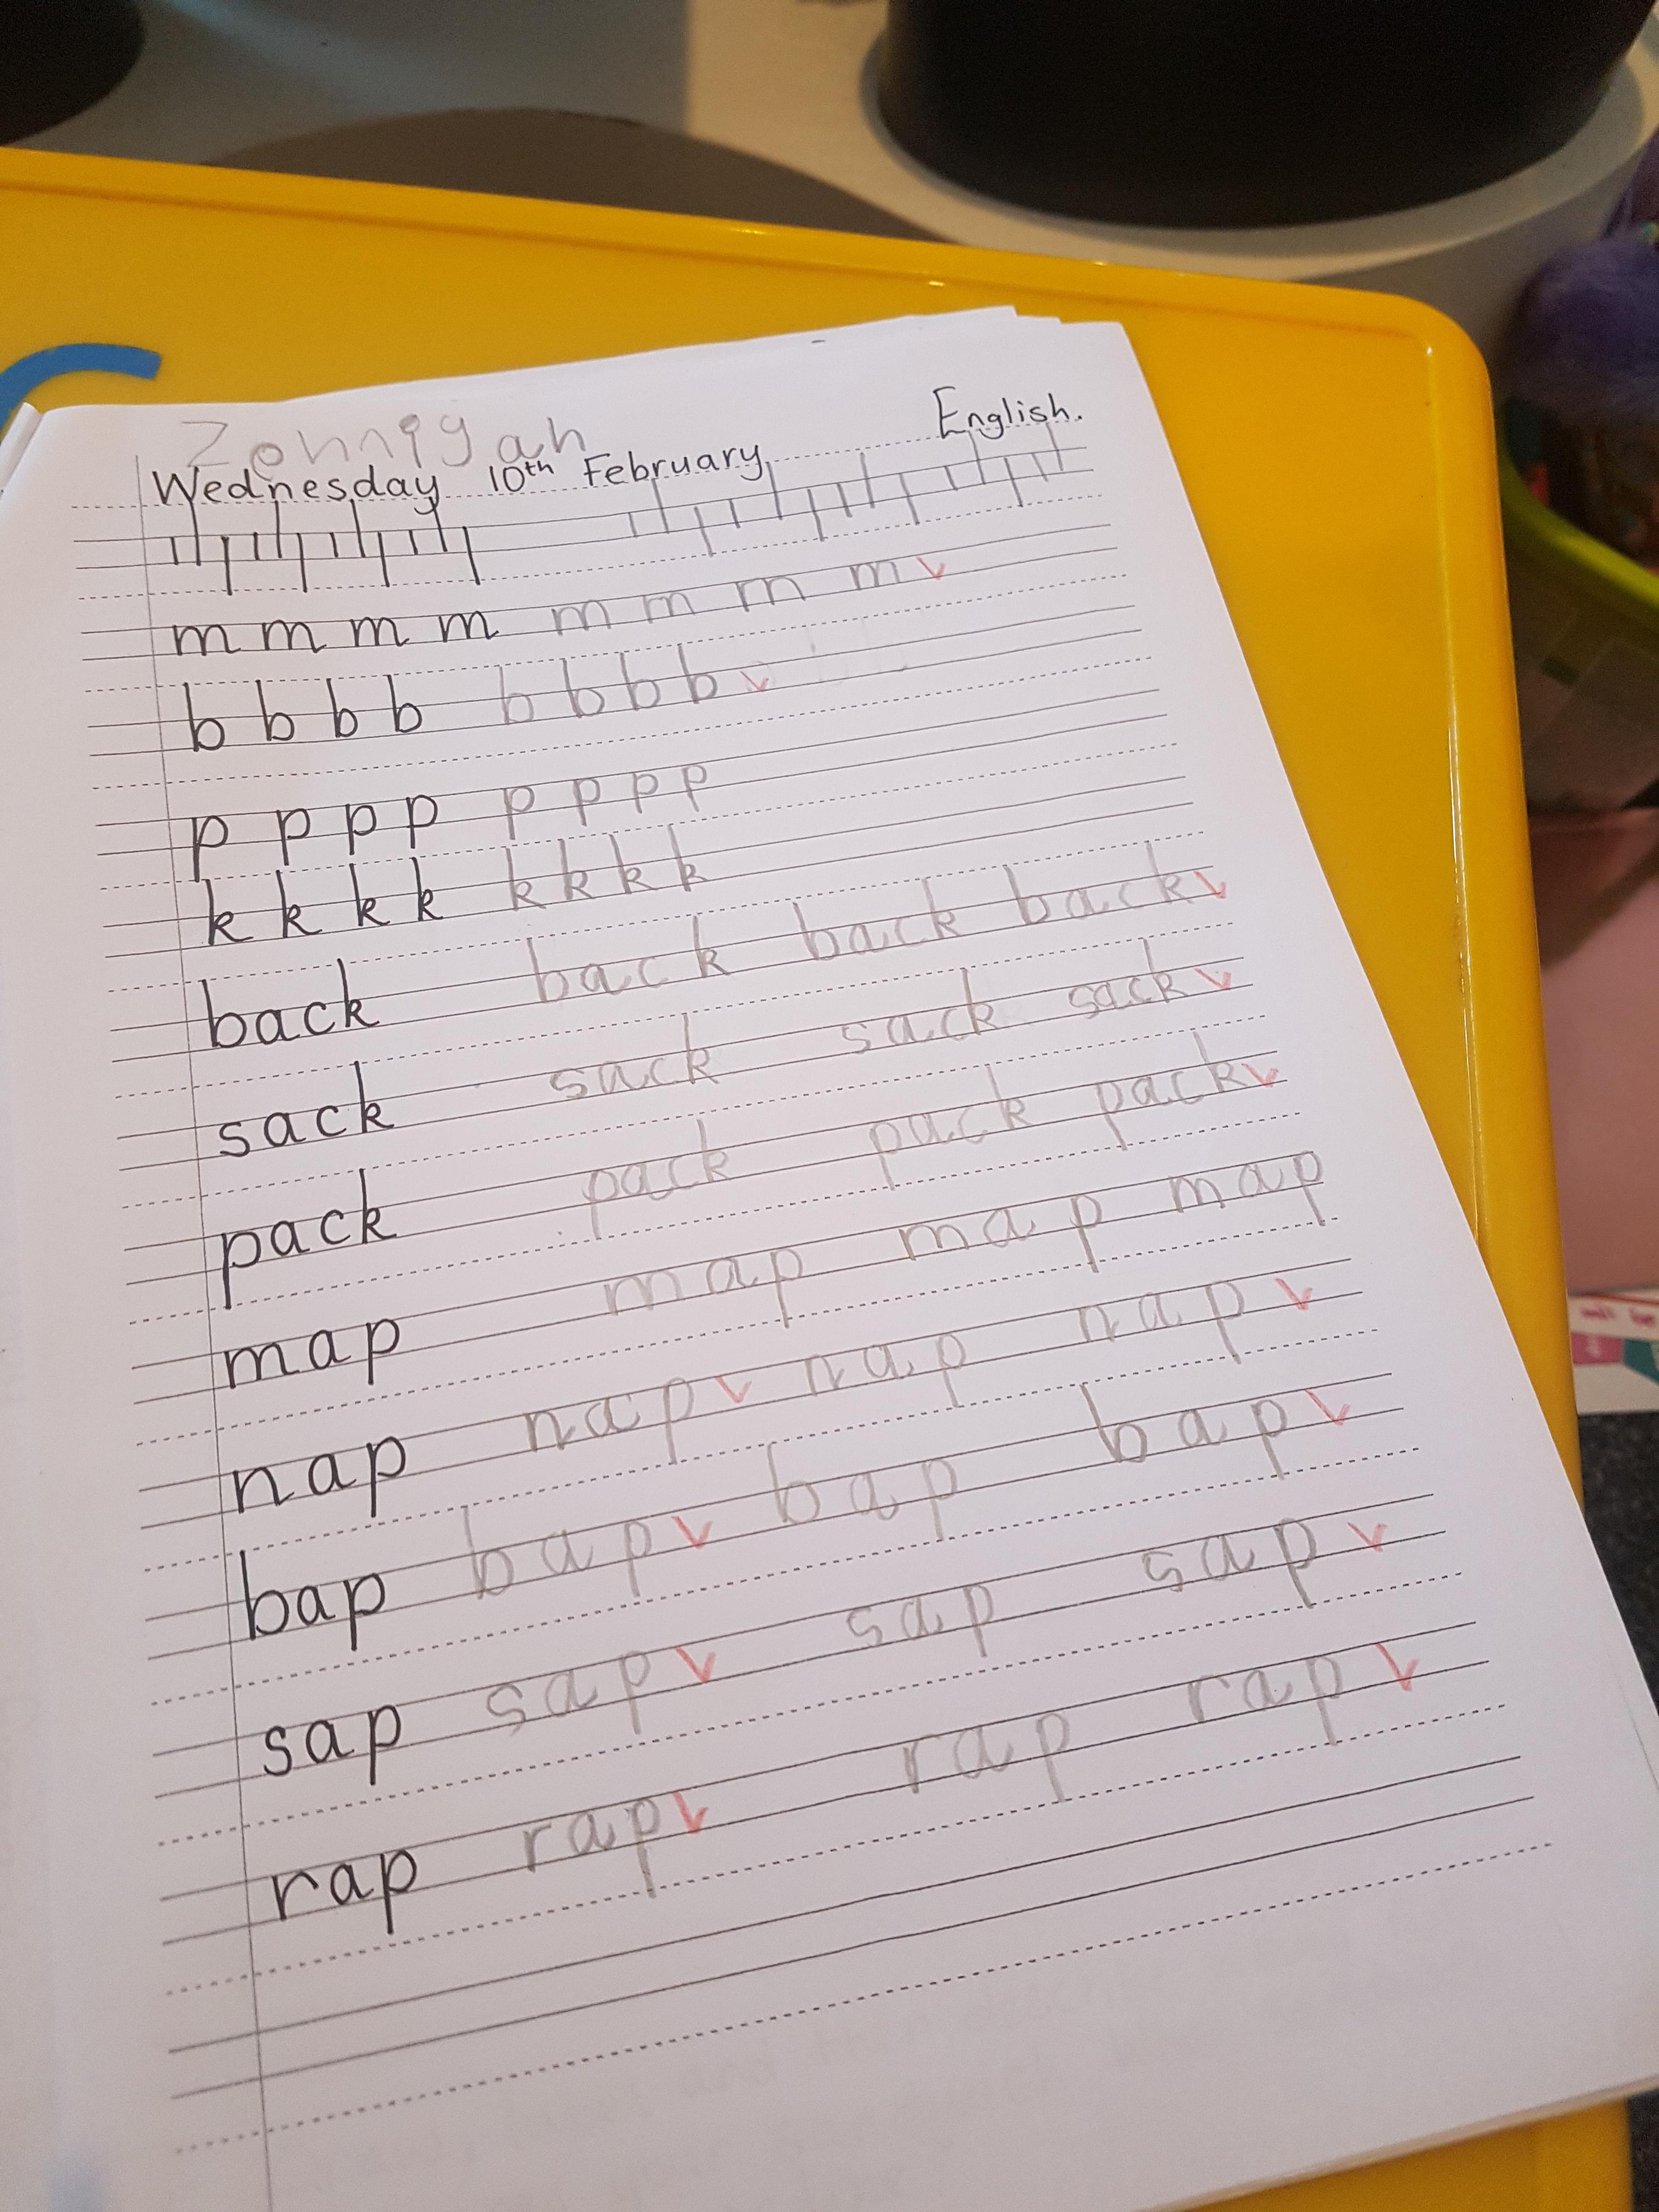 Zonniqah
Wednesday 10th February English.
m m m m m m m m
b b b b b b b b
p p p p p p p p
k k k k k k k k
back back back back
sack sack sack sack
pack pack pack pack
map map map map
nap nap nap nap
bap bap bap bap
sap sap sap sap
rap rap rap rap